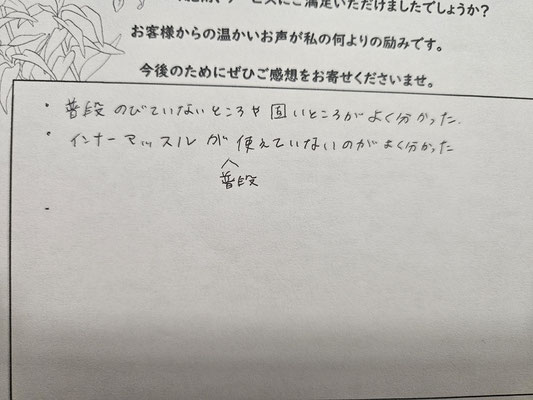 サービスにご満足いただけましたでしょうか?
お客様からの温かいお声が私の何よりの励みです。
今後のためにぜひご感想をお寄せくださいませ。
・普段のびていないところや固いところがよく分かった.
・インナーマッスルが使えていないのがよく分かった
普段
・